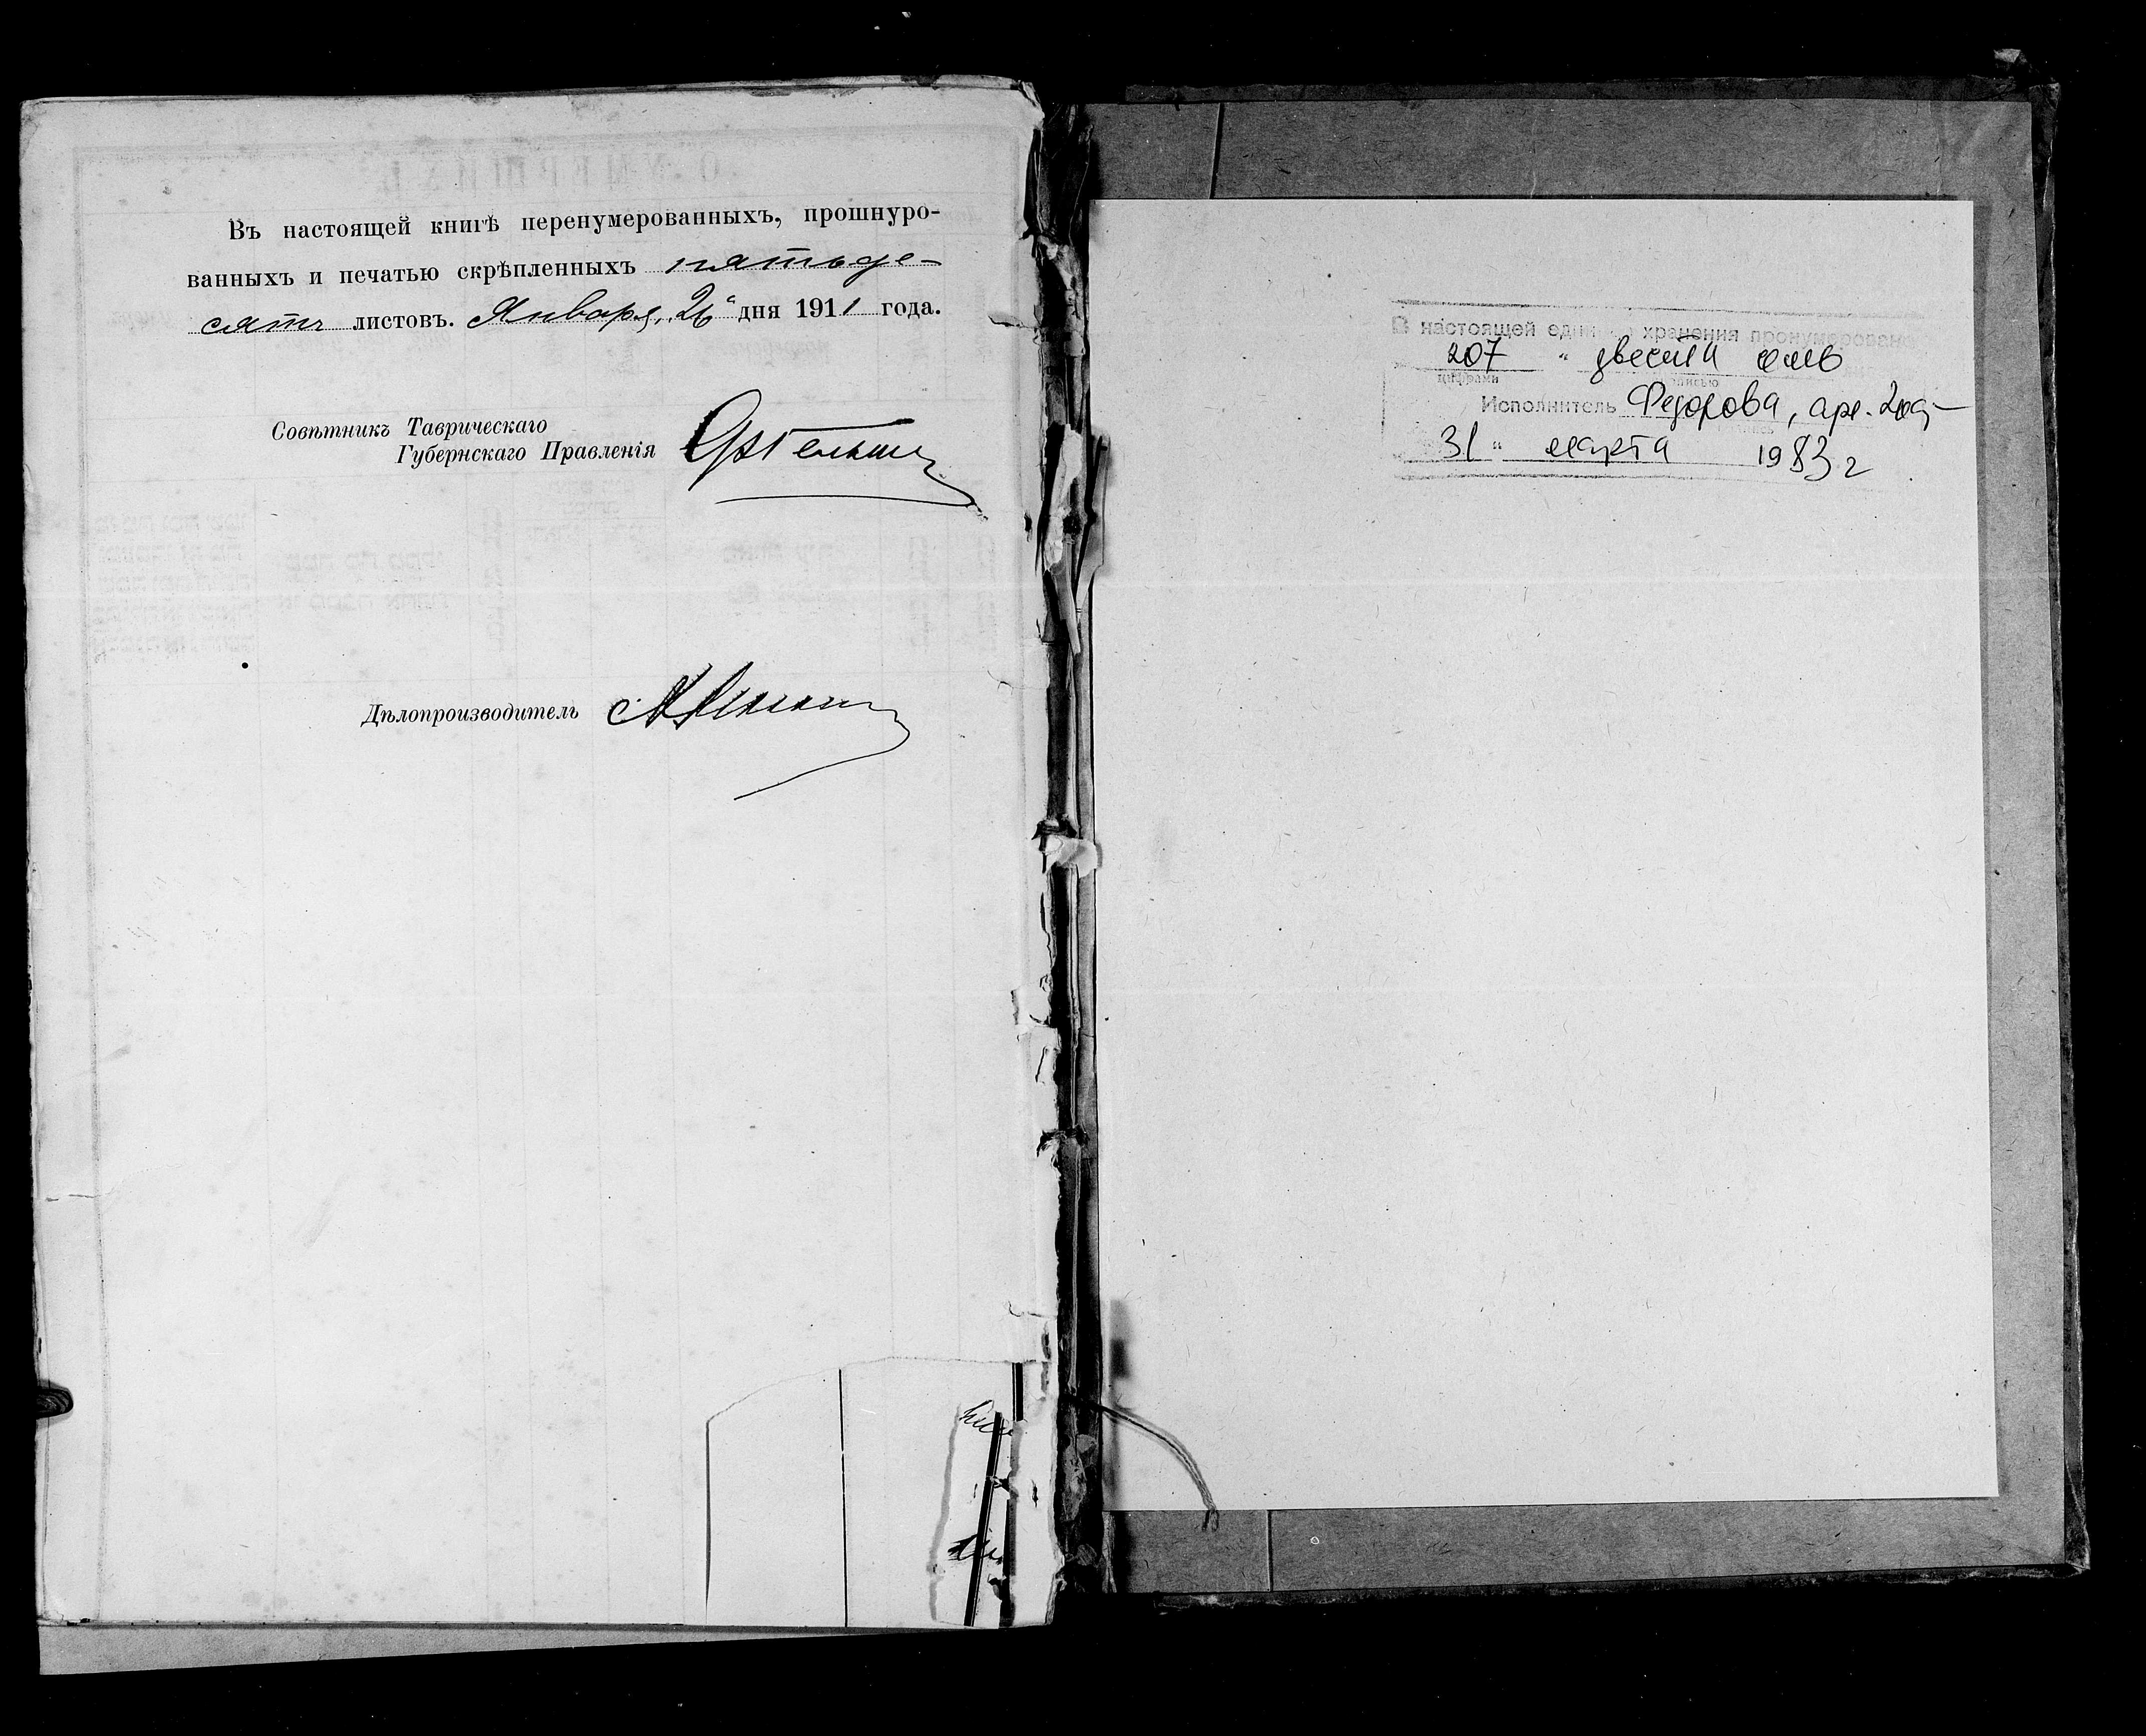 Въ настоящей книгѣ перенумерованныхъ, прошнуро-
ванныхъ и печатью скрѣпленныхъ пятьде-
сятъ листовъ. Января, 26 дня 1911 года.
Совѣтникъ Таврическаго
Губернскаго Правленія
Дѣлопроизводитель
В настоящей един хранения пронумеровано
207 " двести семь
цифрами
Исполнитель Федорова,
31 " марта 1983 г